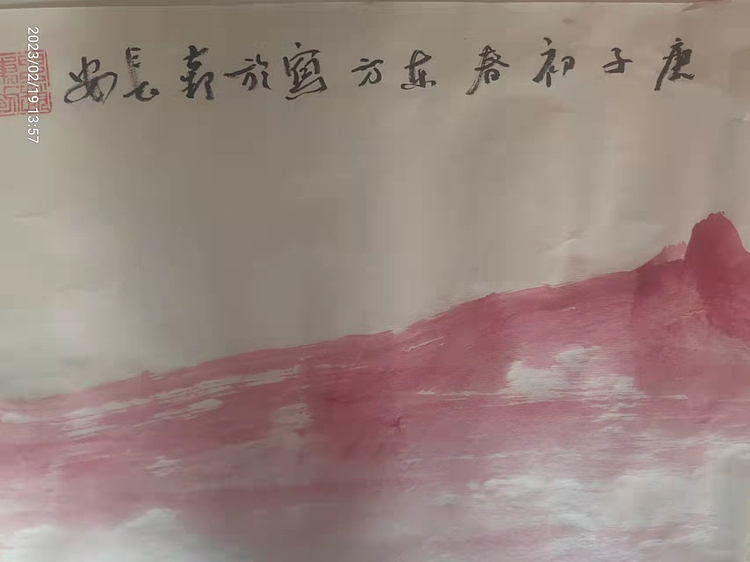 庚子初春东方写於古长安
2023/02/19 13:57